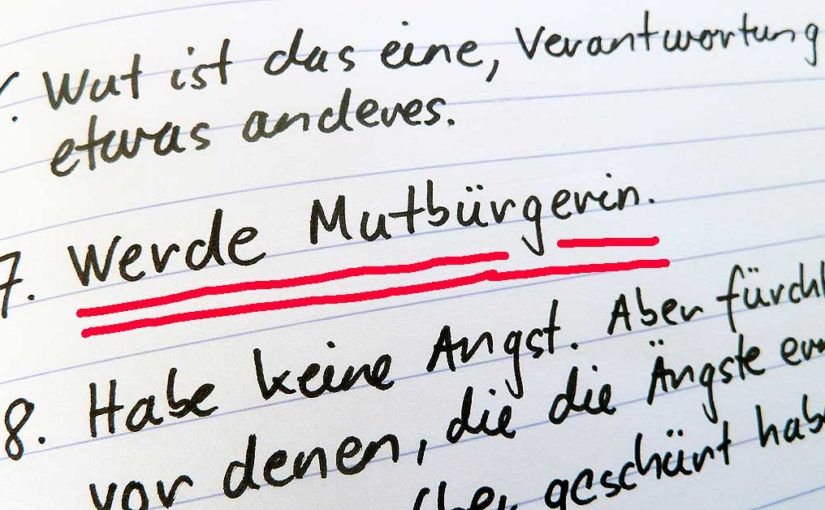 Wut ist das eine, Verantwortung
etwas anderes.
7. Werde Mutbürgerin.
8. Habe keine Angst. Aber
vor denen, die die Ängste
geschürt